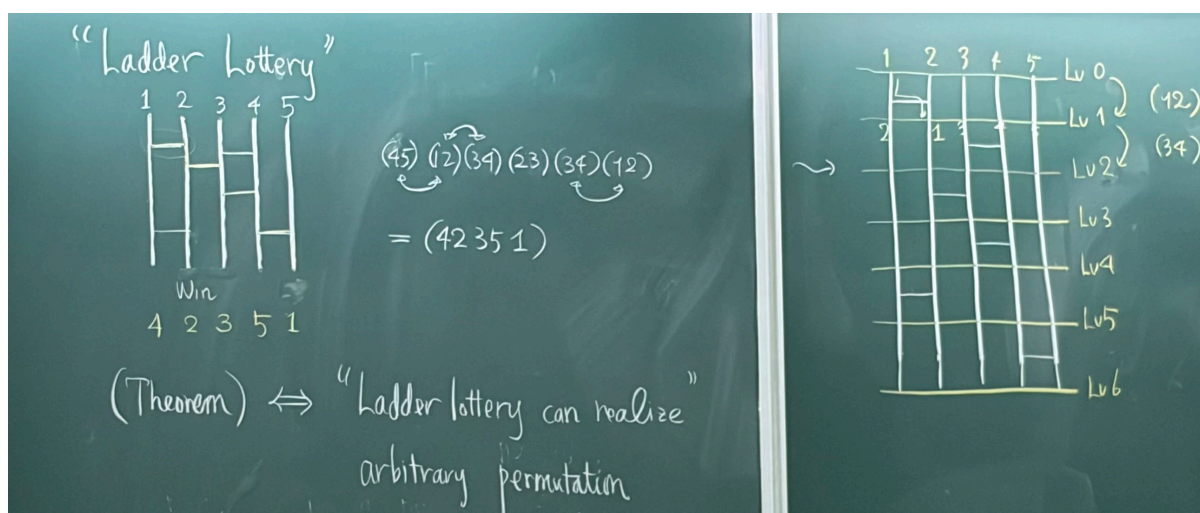 “Ladder Lottery”
1 2 3 4 5
Win
4 2 3 5 1
(45)(12)(34)(23)(34)(12)
= (42351)
(Theorem) ⇔ “Ladder lottery can realize”
arbitrary permutation
1 2 3 4 5
Lv 0
(12)
Lv 1
2 1 3 4 5
(34)
Lv 2
Lv 3
Lv 4
Lv 5
Lv 6